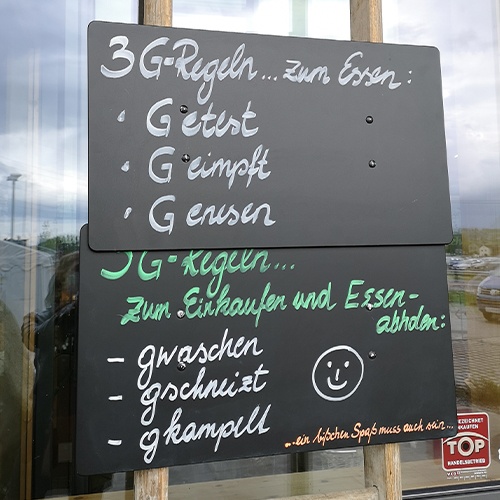 3 G-Regeln... zum Essen:
• Getest
• Geimpft
• Genesen
3 G-Regeln...
zum Einkaufen und Essen-
abholen:
- gwaschen
- gschneizt
- gkampelt
...ein bißchen Spaß muss auch sein...
TOP
HANDELSBETRIEB